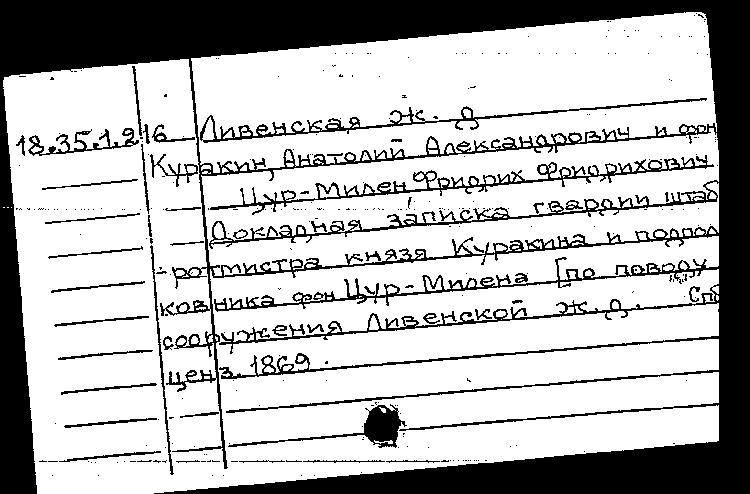 18.35.1.216 Ливенская ж. д
Куракин, Анатолий Александрович и фон
Цур-Милен Фридрих Фридрихович
Докладная записка гвардии штаб
-ротмистра князя Куракина и подпол
ковника фон Цур-Милена [по поводу
сооружения Ливенской ж. д. Спб
ценз. 1869.